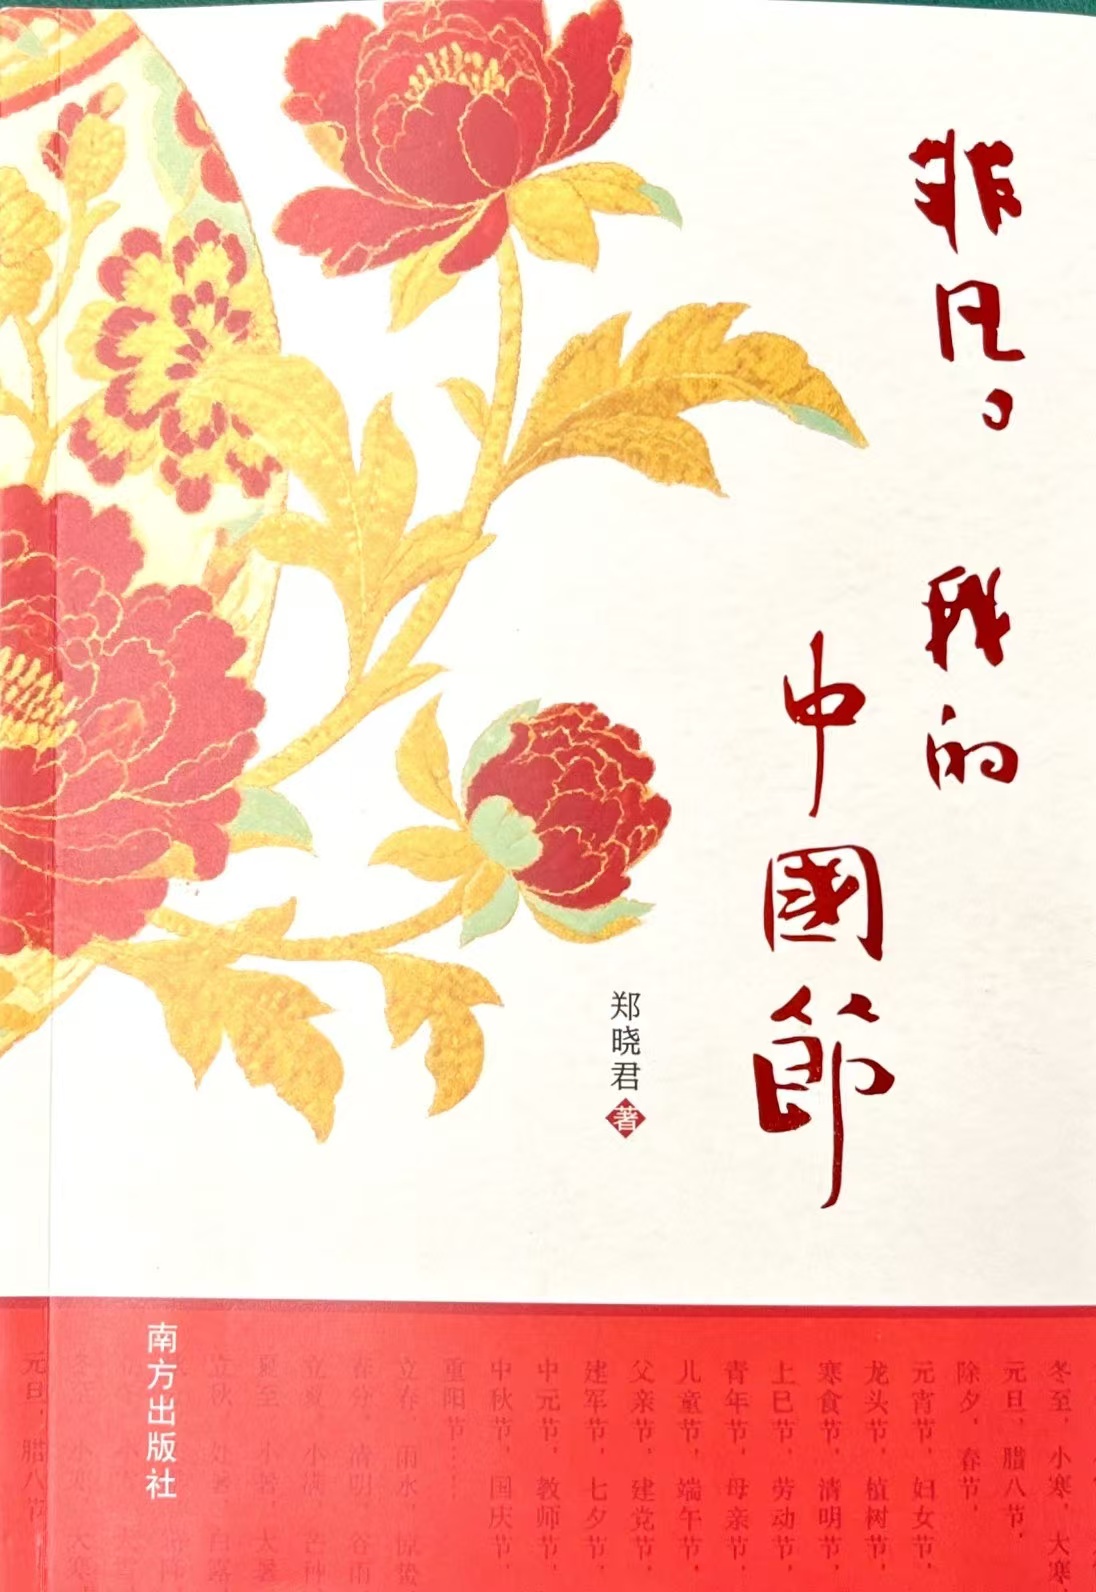 非凡。我的
中國節
郑晓君 著
南方出版社
冬至，小寒，大寒
元旦，腊八节，
除夕，春节，
元宵节，妇女节，
龙头节，植树节，
寒食节，清明节，
上巳节，劳动节，
青年节，母亲节，
儿童节，端午节，
父亲节，建党节，
建军节，七夕节，
中元节，教师节，
中秋节，国庆节，
重阳节……
立春，雨水，惊蛰
春分，清明，谷雨
立夏，小满，芒种
夏至，小暑，大暑
立秋，处暑，白露
冬至，小寒，大寒
元旦，腊八节，